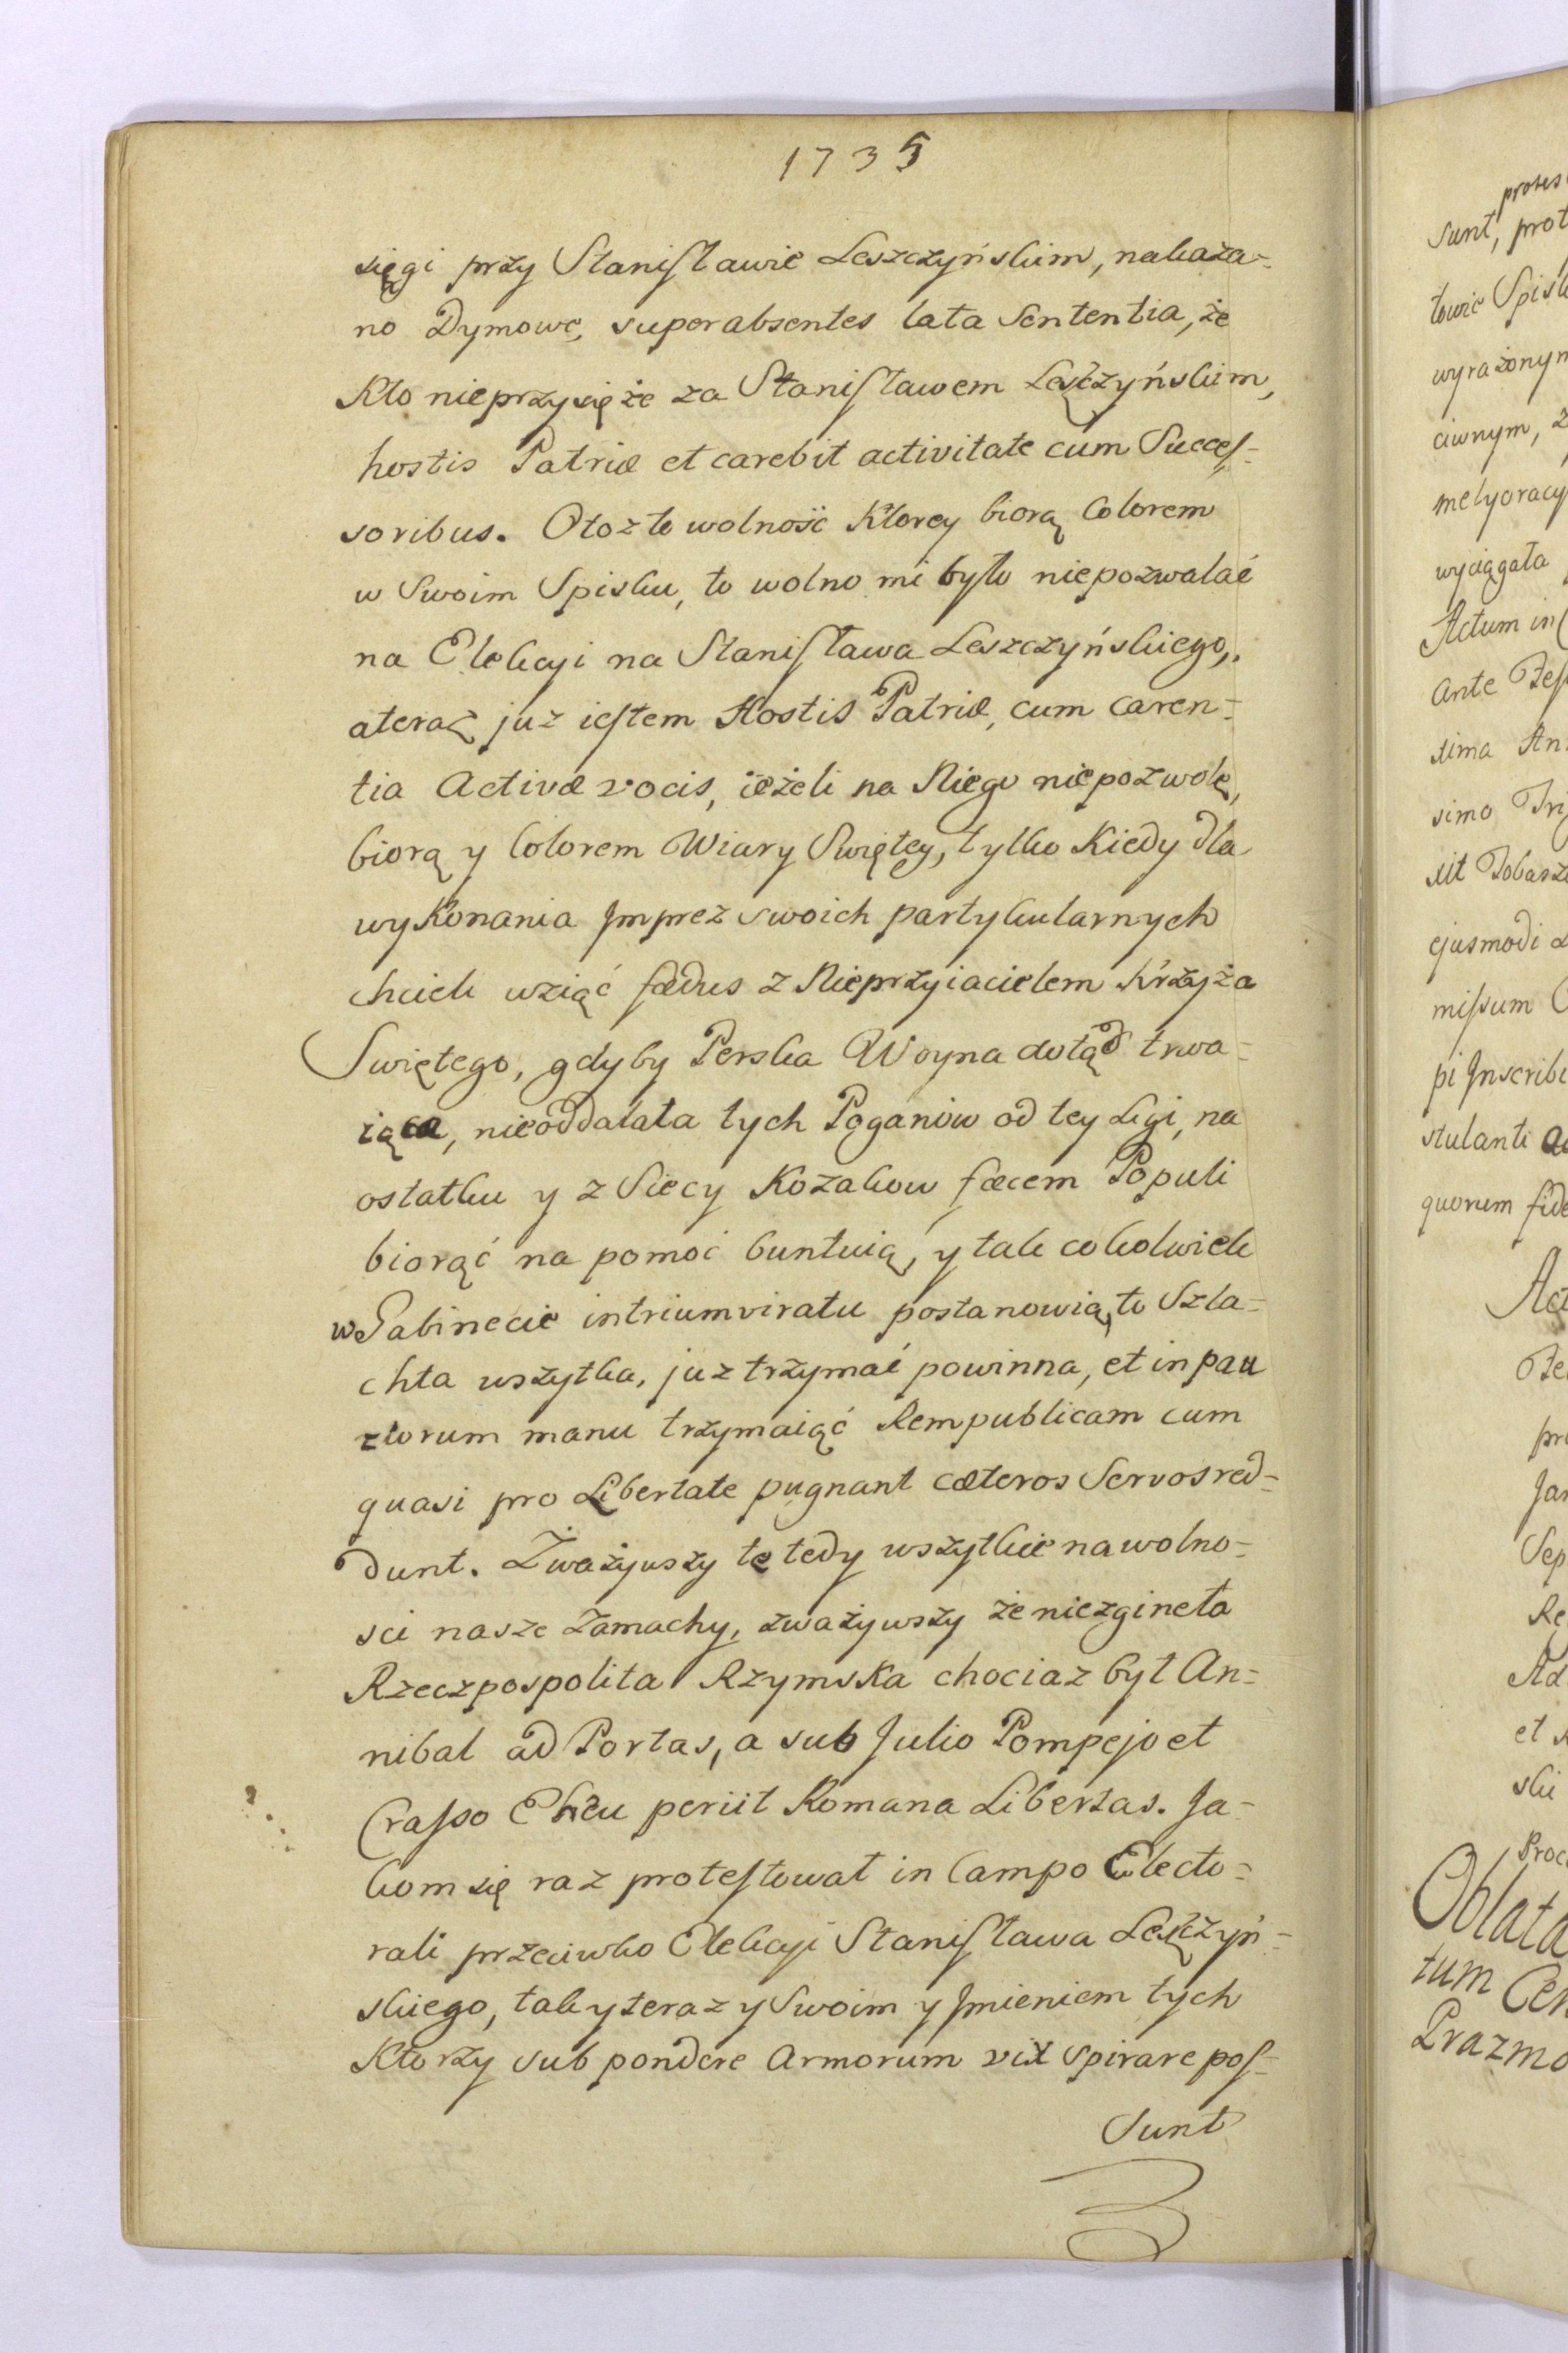 1735
sięgi przy Stanisławie Leszczyńskim, nakaza-
no Dymowe, super absentes lata Sententia, że
Kto nieprzysięże za Stanisławem Leszczyńskim,
hostis Patriæ et carebit activitate cum Succes-
soribus. Otoz to wolność Ktorey biorą Colorem
w Swoim Spisku, to wolno mi było niepozwalać
na Elekcyi na Stanisława Leszczyńskiego,
ateraz juz iestem Hostis Patriæ, cum caren-
tia Activæ vocis, ieżeli na Niego niepozwolę,
biorą y Colorem Wiary Swiętey, tylko Kiedy dla
wykonania Jmprez swoich partykularnych
chcieli wziąć fœdus z Nieprzyiacielem Krzyża
Swiętego, gdyby Perska Woyna dotąd trwa-
iąca, nieoddalała tych Poganów od tey Ligi, na
ostatku y z Siecy Kozakow fæcem Populi
biorąć na pomoć buntuią, y tak cokolwiek
w Gabinecie in triumviratu postanowią, to Szla-
chta wszytka, juz trzymać powinna, et in pau
corum manu trzymaiąć Rempublicam cum
quasi pro Libertate pugnant cæteros Servos red-
dunt. Zważywszy te tedy wszytkie na wolno-
sci nasze Zamachy, zważywszy że niezgineła
Rzeczpospolita Rzymska chociaz był An-
nibal ad Portas, a sub Julio Pompejo et
Crasso Eheu periit Romana Libertas. Ja-
kom się raz protestował in Campo Electo-
rali przeciwko Elekcyi Stanisława Leszczyń-
skiego, tak y teraz y Swoim y Jmieniem tych
Ktorzy sub pondere Armorum vix spirare pos-
sunt
sunt, prot
towie Spisk
wyrażonym
ciwnym, z
melyoracy
wyciągała
Actum in
ante Fes
sima An
simo Tri
xit
ejusmodi
missum
pi Jnscribi
stulanti
quorum fide
Oblata
tum
Prazmo